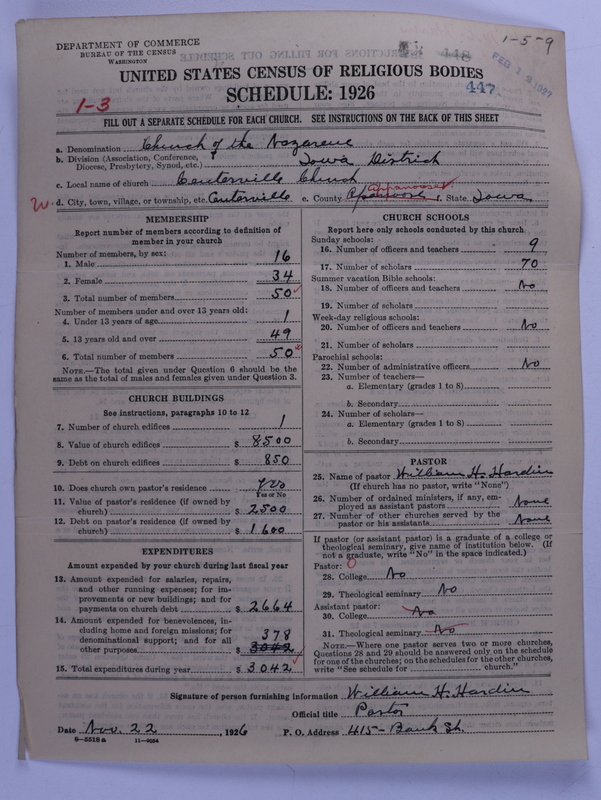 1-5-9
DEPARTMENT OF COMMERCE
BUREAU OF THE CENSUS
WASHINGTON
448
FEB 12 1927
447
UNITED STATES CENSUS OF RELIGIOUS BODIES
SCHEDULE: 1926
1-3
FILL OUT A SEPARATE SCHEDULE FOR EACH CHURCH. SEE INSTRUCTIONS ON THE BACK OF THIS SHEET
a. Denomination Church of the Nazarene
b. Division (Association, Conference, Diocese, Presbytery, Synod, etc.) Iowa District
c. Local name of church Centerville Church
d. City, town, village, or township, etc. Centerville e. County Appanoose f. State Iowa
MEMBERSHIP
Report number of members according to definition of
member in your church
Number of members, by sex:
1. Male 16
2. Female 34
3. Total number of members 50
Number of members under and over 13 years old:
4. Under 13 years of age 1
5. 13 years old and over 49
6. Total number of members 50
NOTE.—The total given under Question 6 should be
same as the total of males and females given under Question 3.
CHURCH BUILDINGS
See instructions, paragraphs 10 to 12
7. Number of church edifices 1
8. Value of church edifices $ 8500
9. Debt on church edifices $ 850
10. Does church own pastor's residence Yes
Yes or No
11. Value of pastor's residence (if owned by
church) $ 2500
12. Debt on pastor's residence (if owned by
church) $ 1600
EXPENDITURES
Amount expended by your church during last fiscal year
13. Amount expended for salaries, repairs,
and other running expenses; for im-
provements or new buildings; and for
payments on church debt $ 2664
14. Amount expended for benevolences, in-
cluding home and foreign missions; for
denominational support; and for all 378
other purposes $ 3042
15. Total expenditures during year $ 3042
CHURCH SCHOOLS
Report here only schools conducted by this church
Sunday schools:
16. Number of officers and teachers 9
17. Number of scholars 70
Summer vacation Bible schools:
18. Number of officers and teachers No
19. Number of scholars
Week-day religious schools:
20. Number of officers and teachers No
21. Number of scholars
Parochial schools:
22. Number of administrative officers No
23. Number of teachers—
a. Elementary (grades 1 to 8)
b. Secondary
24. Number of scholars—
a. Elementary (grades 1 to 8)
b. Secondary
PASTOR
25. Name of pastor William H. Hardin
(If church has no pastor, write "None")
26. Number of ordained ministers, if any, em-
ployed as assistant pastors None
27. Number of other churches served by the
pastor or his assistants None
If pastor (or assistant pastor) is a graduate of a college or
theological seminary, give name of institution below. (If
not a graduate, write "No" in the space indicated.)
Pastor: 0
28. College No
29. Theological seminary No
Assistant pastor:
30. College No
31. Theological seminary No
NOTE.—Where one pastor serves two or more churches,
Questions 28 and 29 should be answered only on the schedule
for one of the churches; on the schedules for the other churches,
write "See schedule for church."
Signature of person furnishing information William H. Hardin
Official title Pastor
Date Nov. 22, 1926 P. O. Address 415- Bank St.
8-5518a 11-9034